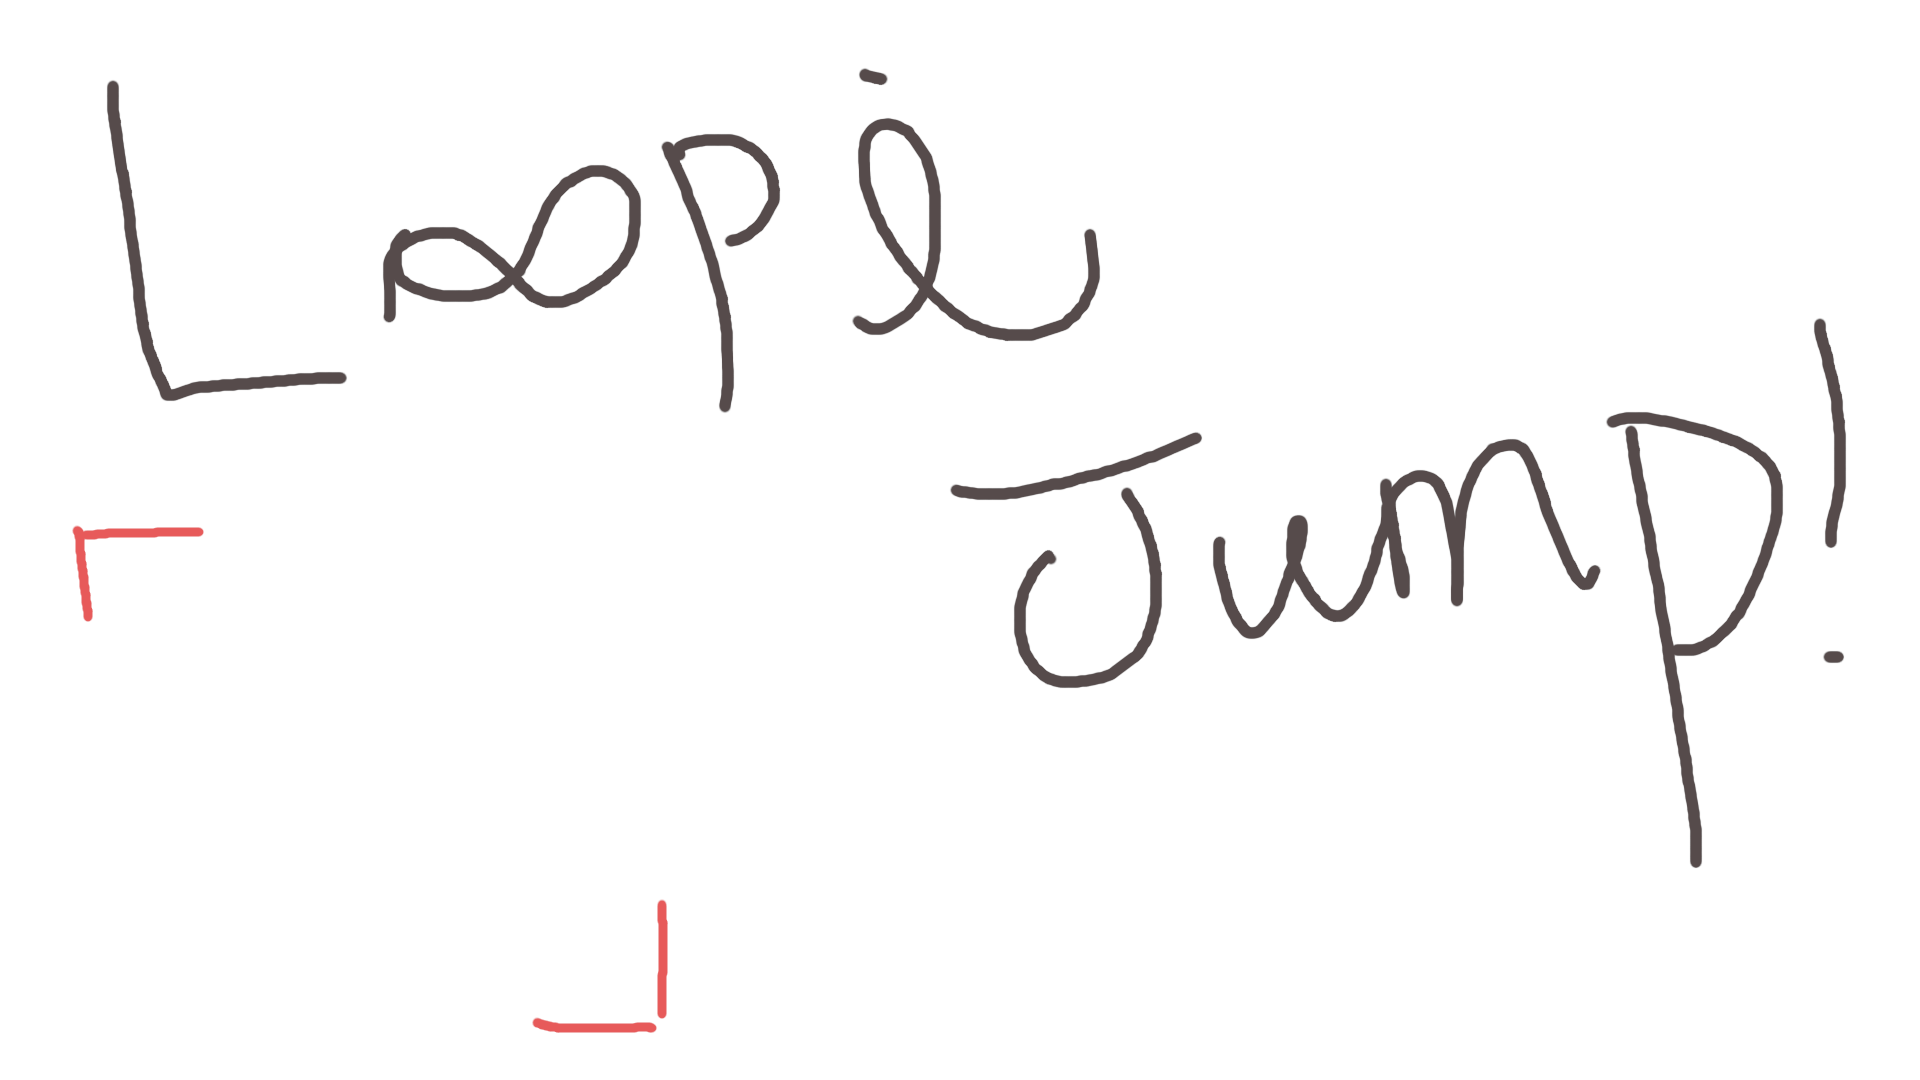 Loopi
Jump!